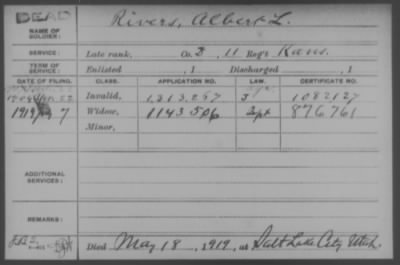 DEAD
NAME OF SOLDIER: Rivers, Albert L.
SERVICE: Late rank, Co. B, 11 Reg't Kans.
TERM OF SERVICE: Enlisted , 1 Discharged , 1
DATE OF FILING. CLASS. APPLICATION NO. LAW. CERTIFICATE NO.
Invalid, 1082127
1919 7 Widow, 1143506 Sept 876761
Minor,
ADDITIONAL SERVICES:
REMARKS:
Died May 18, 1919, at Salt Lake City Utah.